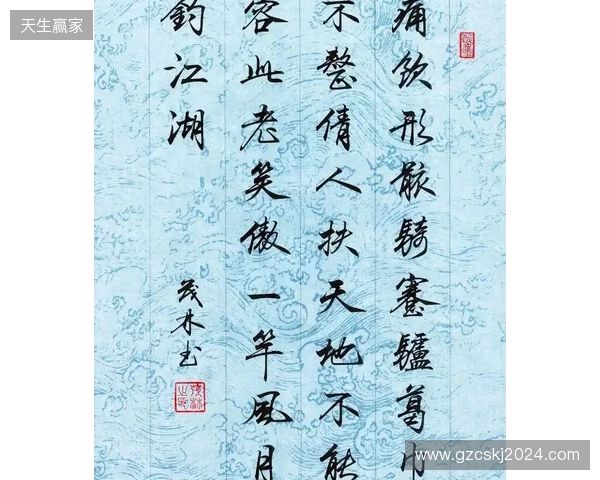 天生赢家
痛饮形骸騎蹇驢葛巾
不整倩人扶天地不能
容此老笑傲一竿風月
釣江湖
茂林书
www.gzcskj2024.com